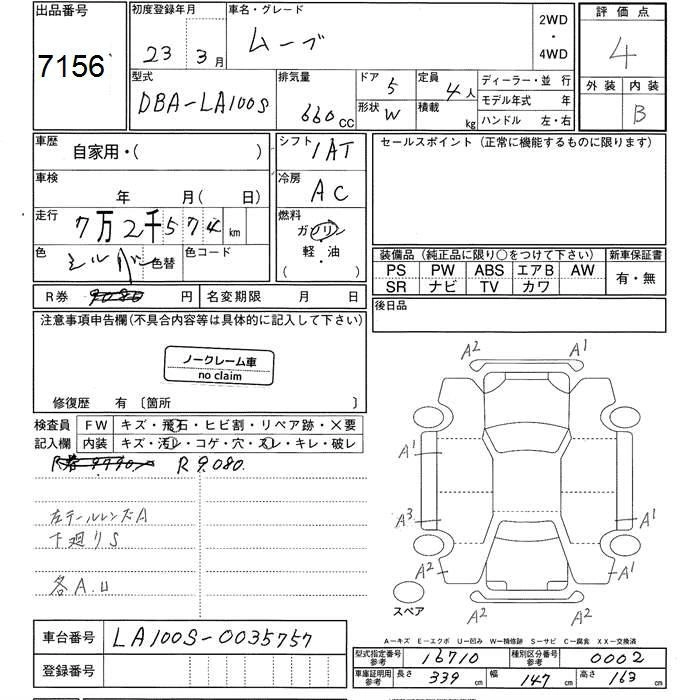 出品番号
7156
初度登録年月
23年 3月
車名・グレード
ムーブ
2WD
・
4WD
評価点
4
外装 内装
B
型式
DBA-LA100S
排気量
660cc
ドア 5
定員 4人
形状 W
積載 kg
ディーラー・並行
モデル年式 年
ハンドル 左・右
車歴
自家用・( )
シフト
IAT
車検
年 月(日)
冷房
AC
走行
7万2千574km
燃料
ガソリン
軽・油
( )
色
シルバー
色替
色コード
R券 9080 円
名変期限 月 日
セールスポイント (正常に機能するものに限ります)
装備品 (純正品に限り○をつけて下さい)
新車保証書
PS PW ABS エアB AW
SR ナビ TV カワ
有・無
後日品
注意事項申告欄(不具合内容等は具体的に記入して下さい)
ノークレーム車
no claim
修復歴 有 〔箇所 〕
検査員
記入欄
FW キズ・飛石・ヒビ割・リペア跡・×要
内装 キズ・汚れ・コゲ・穴・スレ・キレ・破レ
R券 9990 R 9.080.
左テールレンズA
下廻りS
各A.U
A2 A1
A1 A1
A3 A1
A2 A2
A2 A2
スペア
A―キズ E―エクボ U―凹み W―補修跡 S―サビ C―腐食 XX―交換済
車台番号
LA100S-0035757
登録番号
型式指定番号
参考
16710
種別区分番号
参考
0002
車庫証明用
参考
長さ 339cm
幅 147cm
高さ 163cm